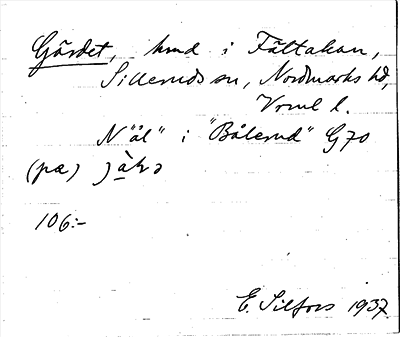 Gärdet, hmd i Fältakan,
Silleruds sn, Nordmarks hd,
Vrml l.
N "äl" i "Bålerud" G70
(pa)
106:-
E. Silfors 1937